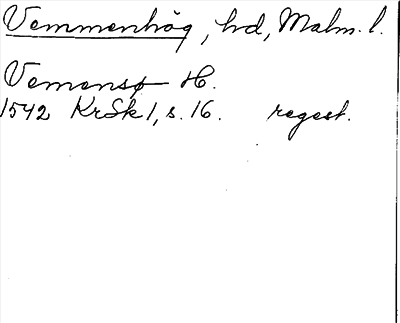 Vemmenhög, hd, Malm. l.
Vemensø H.
1542 KrSk 1, s. 16. regest.